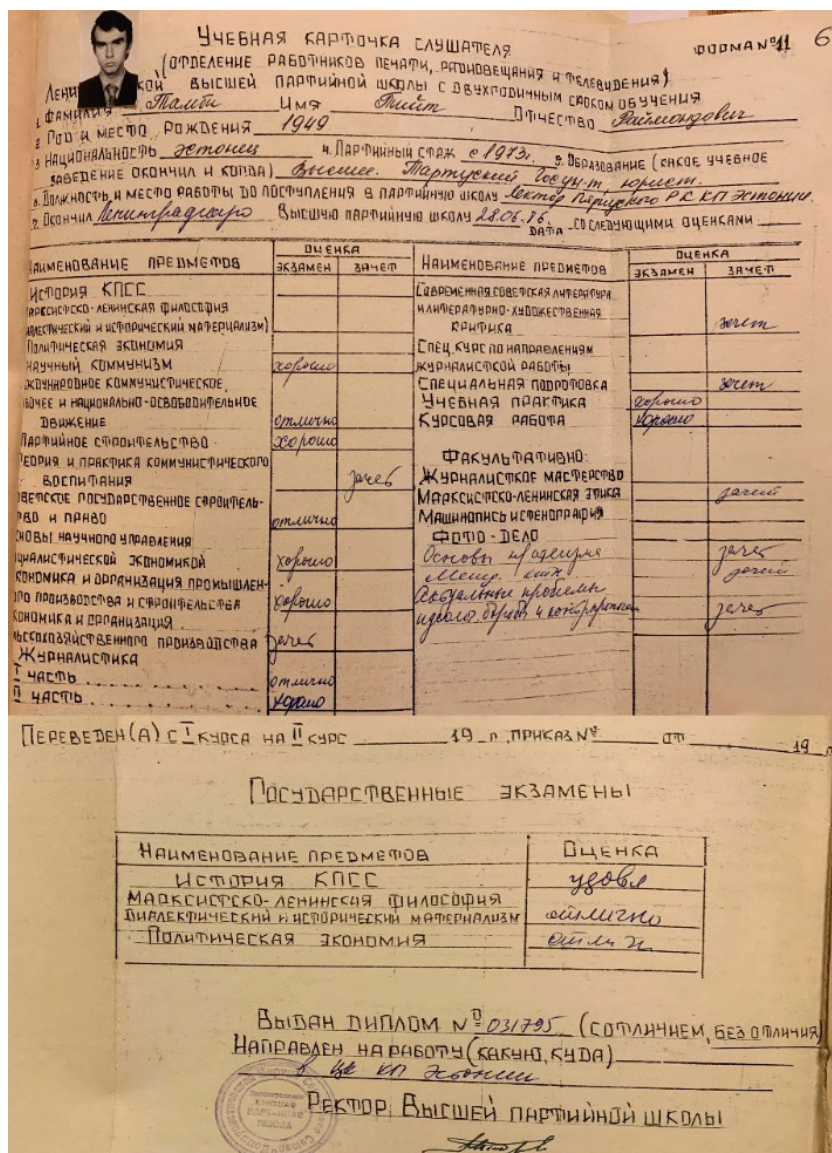 УЧЕБНАЯ КАРТОЧКА СЛУШАТЕЛЯ
ФОРМА № 11
6
(ОТДЕЛЕНИЕ РАБОТНИКОВ ПЕЧАТИ, РАДИОВЕЩАНИЯ И ТЕЛЕВИДЕНИЯ)
ЛЕНИ КОЙ ВЫСШЕЙ ПАРТИЙНОЙ ШКОЛЫ С ДВУХГОДИЧНЫМ СРОКОМ ОБУЧЕНИЯ
1. ФАМИЛИЯ Тамби ИМЯ Тийт ОТЧЕСТВО Раймондович
2. ГОД И МЕСТО РОЖДЕНИЯ 1949
3 НАЦИОНАЛЬНОСТЬ эстонец 4. ПАРТИЙНЫЙ СТАЖ с 1973г. 5. ОБРАЗОВАНИЕ (КАКОЕ УЧЕБНОЕ
ЗАВЕДЕНИЕ ОКОНЧИЛ И КОГДА) Высшее. Тартуский Госун-т, юрист.
6. ДОЛЖНОСТЬ И МЕСТО РАБОТЫ ДО ПОСТУПЛЕНИЯ В ПАРТИЙНУЮ ШКОЛУ лектор РК КП Эстонии.
7. ОКОНЧИЛ Ленинградскую ВЫСШУЮ ПАРТИЙНУЮ ШКОЛУ 28.06.76. СО СЛЕДУЮЩИМИ ОЦЕНКАМИ:
ДАТА
НАИМЕНОВАНИЕ ПРЕДМЕТОВ ОЦЕНКА
ЭКЗАМЕН ЗАЧЕТ
ИСТОРИЯ КПСС
МАРКСИСТСКО-ЛЕНИНСКАЯ ФИЛОСОФИЯ
АЛЕКТИЧЕСКИЙ И ИСТОРИЧЕСКИЙ МАТЕРИАЛИЗМ)
ПОЛИТИЧЕСКАЯ ЭКОНОМИЯ
НАУЧНЫЙ КОММУНИЗМ хорошо
ЖДУНАРОДНОЕ КОММУНИСТИЧЕСКОЕ,
БОЧЕЕ И НАЦИОНАЛЬНО-ОСВОБОДИТЕЛЬНОЕ
ДВИЖЕНИЕ отлично
ПАРТИЙНОЕ СТРОИТЕЛЬСТВО хорошо
ТЕОРИЯ И ПРАКТИКА КОММУНИСТИЧЕСКОГО
ВОСПИТАНИЯ зачет
ОВЕТСКОЕ ГОСУДАРСТВЕННОЕ СТРОИТЕЛЬ-
ТВО И ПРАВО отлично
СНОВЫ НАУЧНОГО УПРАВЛЕНИЯ
ЦИАЛИСТИЧЕСКОЙ ЭКОНОМИКОЙ хорошо
КОНОМИКА И ОРГАНИЗАЦИЯ ПРОМЫШЛЕН-
ОГО ПРОИЗВОДСТВА И СТРОИТЕЛЬСТВА хорошо
КОНОМИКА И ОРГАНИЗАЦИЯ
ЛЬСКОХОЗЯЙСТВЕННОГО ПРОИЗВОДСТВА зачет
ЖУРНАЛИСТИКА
I ЧАСТЬ отлично
II ЧАСТЬ хорошо
НАИМЕНОВАНИЕ ПРЕДМЕТОВ ОЦЕНКА
ЭКЗАМЕН ЗАЧЕТ
СОВРЕМЕННАЯ СОВЕТСКАЯ ЛИТЕРАТУРА
И ЛИТЕРАТУРНО-ХУДОЖЕСТВЕННАЯ
КРИТИКА зачет
СПЕЦ. КУРС ПО НАПРАВЛЕНИЯМ
ЖУРНАЛИСТСКОЙ РАБОТЫ
СПЕЦИАЛЬНАЯ ПОДГОТОВКА зачет
УЧЕБНАЯ ПРАКТИКА хорошо
КУРСОВАЯ РАБОТА хорошо
ФАКУЛЬТАТИВНО:
ЖУРНАЛИСТКОЕ МАСТЕРСТВО
МАРКСИСТСКО-ЛЕНИНСКАЯ ЭТИКА зачет
МАШИНОПИСЬ И СТЕНОГРАФИЯ
ФОТО-ДЕЛО
Основы зачет
зачет
Актуальные проблемы
идеолог. борьбы и контрпропаг. зачет
ПЕРЕВЕДЕН(А) С I КУРСА НА II КУРС 19 г. ПРИКАЗ № ОТ 19
ГОСУДАРСТВЕННЫЕ ЭКЗАМЕНЫ
НАИМЕНОВАНИЕ ПРЕДМЕТОВ ОЦЕНКА
ИСТОРИЯ КПСС удовл
МАРКСИСТСКО-ЛЕНИНСКАЯ ФИЛОСОФИЯ
ДИАЛЕКТИЧЕСКИЙ И ИСТОРИЧЕСКИЙ МАТЕРИАЛИЗМ отлично
ПОЛИТИЧЕСКАЯ ЭКОНОМИЯ отличн
ВЫДАН ДИПЛОМ № 031795 (С ОТЛИЧИЕМ, БЕЗ ОТЛИЧИЯ)
НАПРАВЛЕН НА РАБОТУ (КАКУЮ, КУДА)
в ЦК КП Эстонии
РЕКТОР ВЫСШЕЙ ПАРТИЙНОЙ ШКОЛЫ
ВЫСШАЯ
ПАРТИЙНАЯ
ШКОЛА